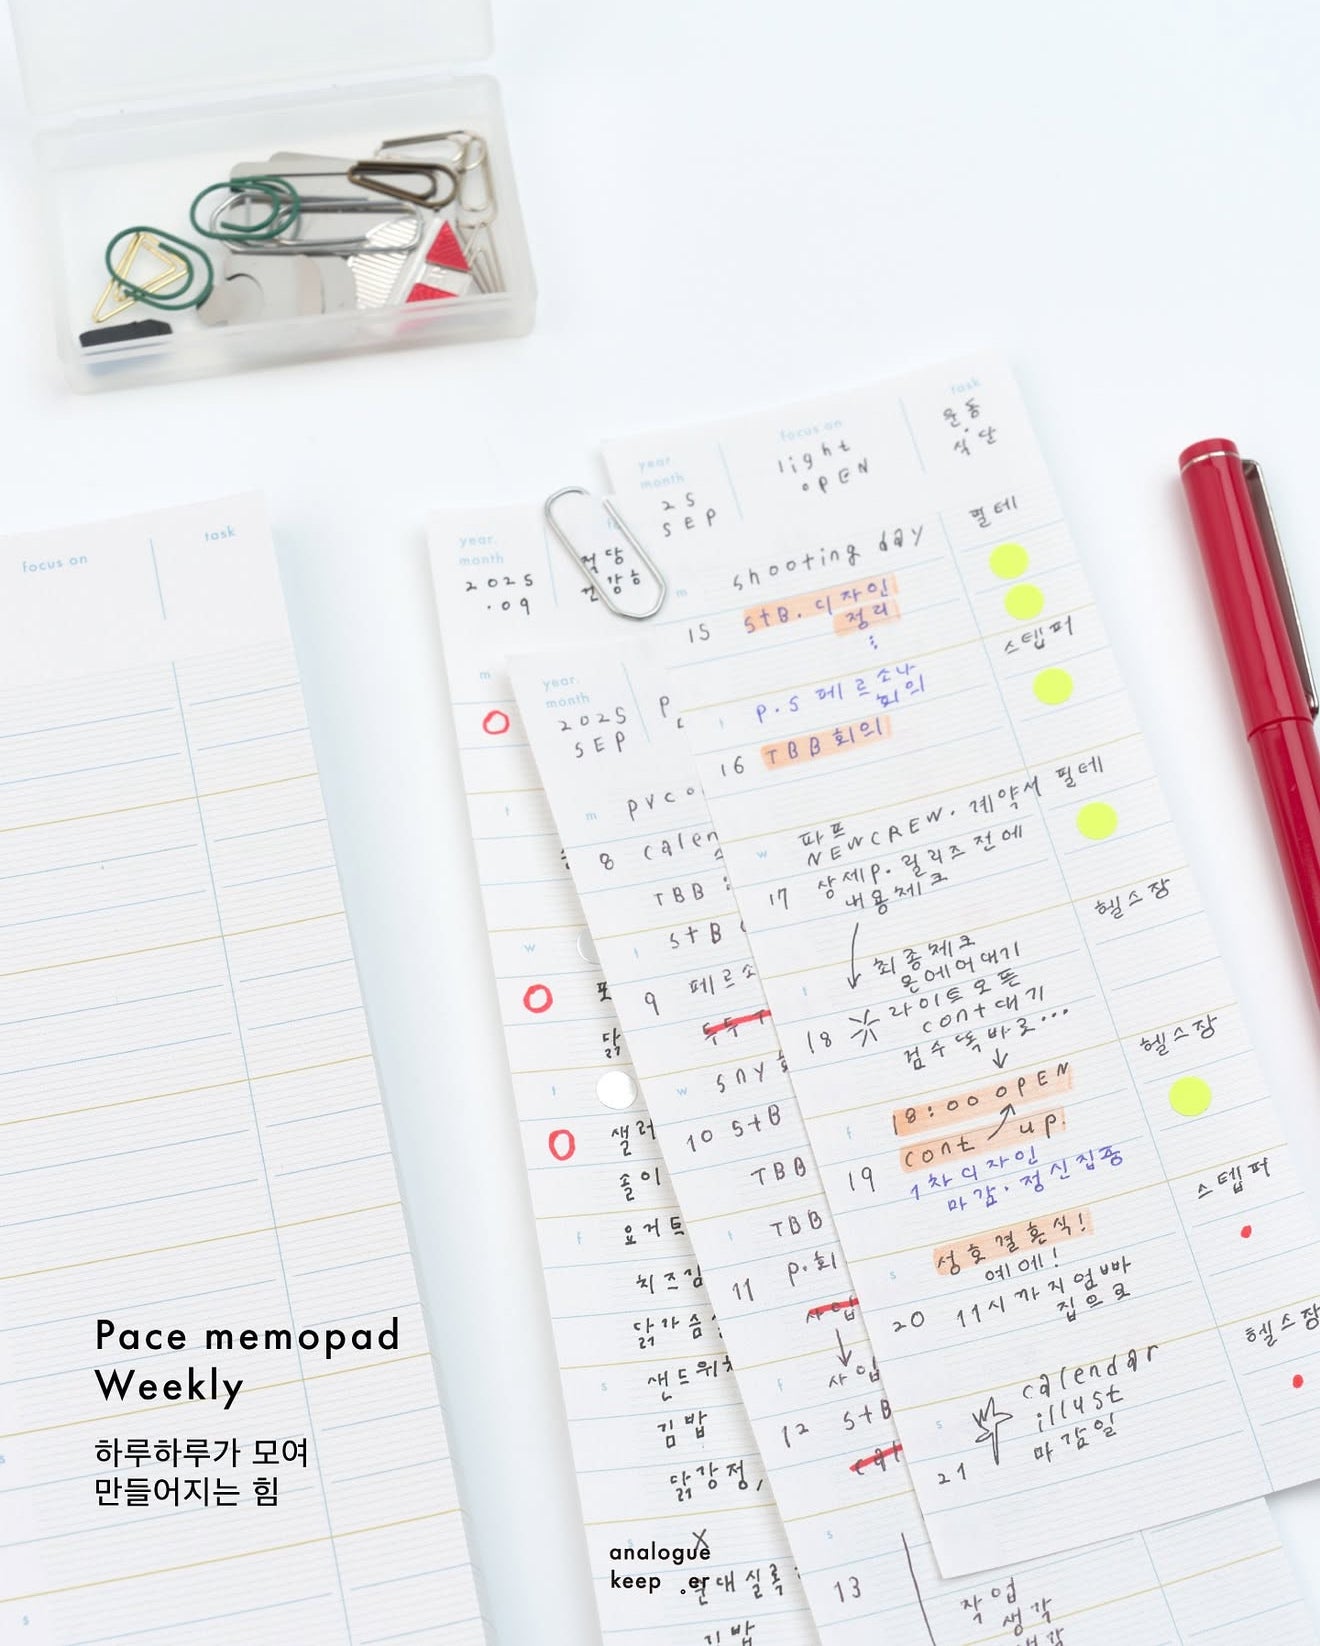 focus on
task
year.
month
2025
.09
적당
m
t
w
t
닭
솔이
f
요거트
s
샌드위치
김밥
닭강정,
X
김밥
year.
month
2025
SEP
m
8
TBB
t
9
w
10 StB
TBB
t
TBB
11
P.회
f
사업
12
StB
s
13
작업
생각
생각
year.
month
25
SEP
focus on
light
OPEN
task
운동
식단
m
shooting day
필테
15
StB. 디자인
정리
스텝퍼
t
P.S 페르소나
회의
16
TBB 회의
w
파프
NEWCREW. 계약서
필테
17
상세P. 릴리즈 전에
내용체크
헬스장
t
최종체크
온에어대기
18
라이트오픈
cont 대기
검수똑바로...
헬스장
f
18:00 OPEN
cont up.
19
1차디자인
마감.정신집중
스텝퍼
s
성호결혼식!
예에!
20
11시까지엄빠
집으로
헬스장
s
calendar
illust
21
마감일
Pace memopad
Weekly
하루하루가 모여
만들어지는 힘
s
s
analogue
keep .er